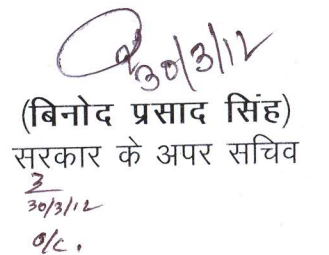 30/3/12
(बिनोद प्रसाद सिंह)
सरकार के अपर सचिव
3
30/3/12
o/c.